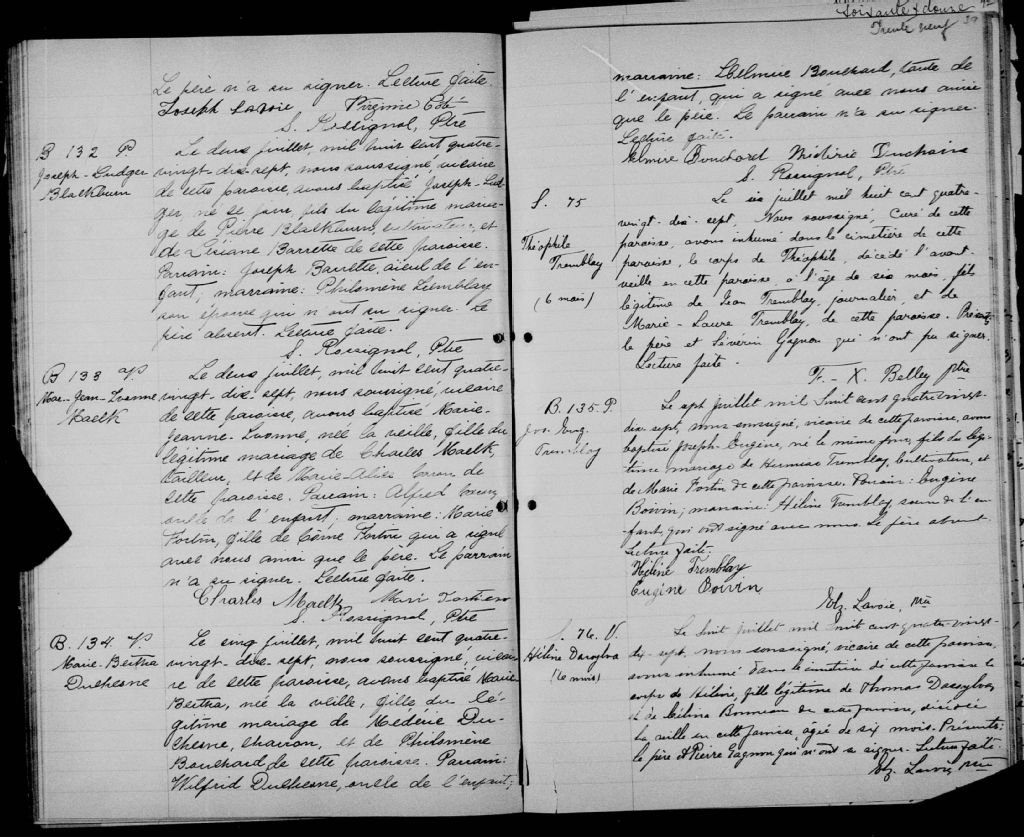 Le père n'a su signer. Lecture faite.
Joseph Lavoie, Virginie Coté
S. Rossignol, Ptre
B 132 P.
Joseph-Ludger
Blackburn
Le deux juillet, mil huit cent quatre-
vingt-dix-sept, nous soussigné, vicaire
de cette paroisse, avons baptisé Joseph-Lud-
ger, né ce jour, fils du légitime maria-
ge de Pierre Blackburn, cultivateur, et
de Lésiane Barrette de cette paroisse.
Parrain: Joseph Barrette, aïeul de l'en-
fant; marraine: Philomène Tremblay
son épouse qui n'ont su signer. Le
père absent. Lecture faite.
S. Rossignol, Ptre
B 133 P
Mar-Jean-Ivonne
Maelk
Le deux juillet, mil huit cent quatre-
vingt-dix-sept, nous soussigné, vicaire
de cette paroisse, avons baptisé Marie-
Jeanne-Ivonne, née la veille, fille du
légitime mariage de Charles Maelk,
tailleur, et de Marie-Alice
cette paroisse. Parrain: Alfred
oncle de l'enfant; marraine: Marie
Fortin, fille de Fortin qui a signé
avec nous ainsi que le père. Le parrain
n'a su signer. Lecture faite.
Charles Maelk Marie
S. Rossignol, Ptre
B. 134 P
Marie-Bertha
Duchesne
Le cinq juillet, mil huit cent quatre-
vingt-dix-sept, nous soussigné, vicai-
re de cette paroisse, avons baptisé Marie
Bertha, née la veille, fille du lé-
gitime mariage de Médéric Du-
chesne, charron, et de Philomène
Bouchard de cette paroisse. Parrain:
Wilfrid Duchesne, oncle de l'enfant;
soixante & douze
Trente neuf 39
marraine: Elmire Bouchard, tante de
l'enfant, qui a signé avec nous ainsi
que le père. Le parrain n'a su signer.
Lecture faite.
Elmire Bouchard Duchaine
S. Rossignol, Ptre
S. 75
Théophile
Tremblay
(6 mois)
Le six juillet mil huit cent quatre-
vingt-dix-sept. Nous soussigné, Curé de cette
paroisse, avons inhumé dans le cimetière de cette
paroisse, le corps de Théophile, décédé l'avant-
veille en cette paroisse à l'âge de six mois, fils
légitime de Jean Tremblay, journalier, et de
Marie-Laure Tremblay, de cette paroisse. Présents,
le père et Séverin Gagnon qui n'ont pu signer.
Lecture faite.
F.-X. Belley ptre
B. 135. P.
Jos. Eug.
Tremblay
Le sept juillet mil huit cent quatre vingt-
dix-sept, nous soussigné, vicaire de cette paroisse, avons
baptisé Joseph-Eugène, né le même jour, fils du légi-
time mariage de Tremblay, cultivateur, et
de Marie Fortin de cette paroisse. Parrain: Eugène
Boivin; marraine: Hélène Tremblay, soeur de l'en-
fant, qui ont signé avec nous. Le père absent.
Lecture faite.
Hélène Tremblay
Eugène Boivin
Elz. Lavoie, ptre
S. 76. V.
Hélène Dassylva
(6 mois)
Le huit juillet mil huit cent quatre-vingt-
dix-sept, nous soussigné, vicaire de cette paroisse,
avons inhumé dans le cimetière de cette paroisse le
corps de Hélène, fille légitime de Thomas Dassylva,
et de Célina de cette paroisse, décédée
la veille en cette paroisse, âgée de six mois. Présents:
le père et Pierre Gagnon qui n'ont su signer. Lecture faite.
Elz. Lavoie, ptre